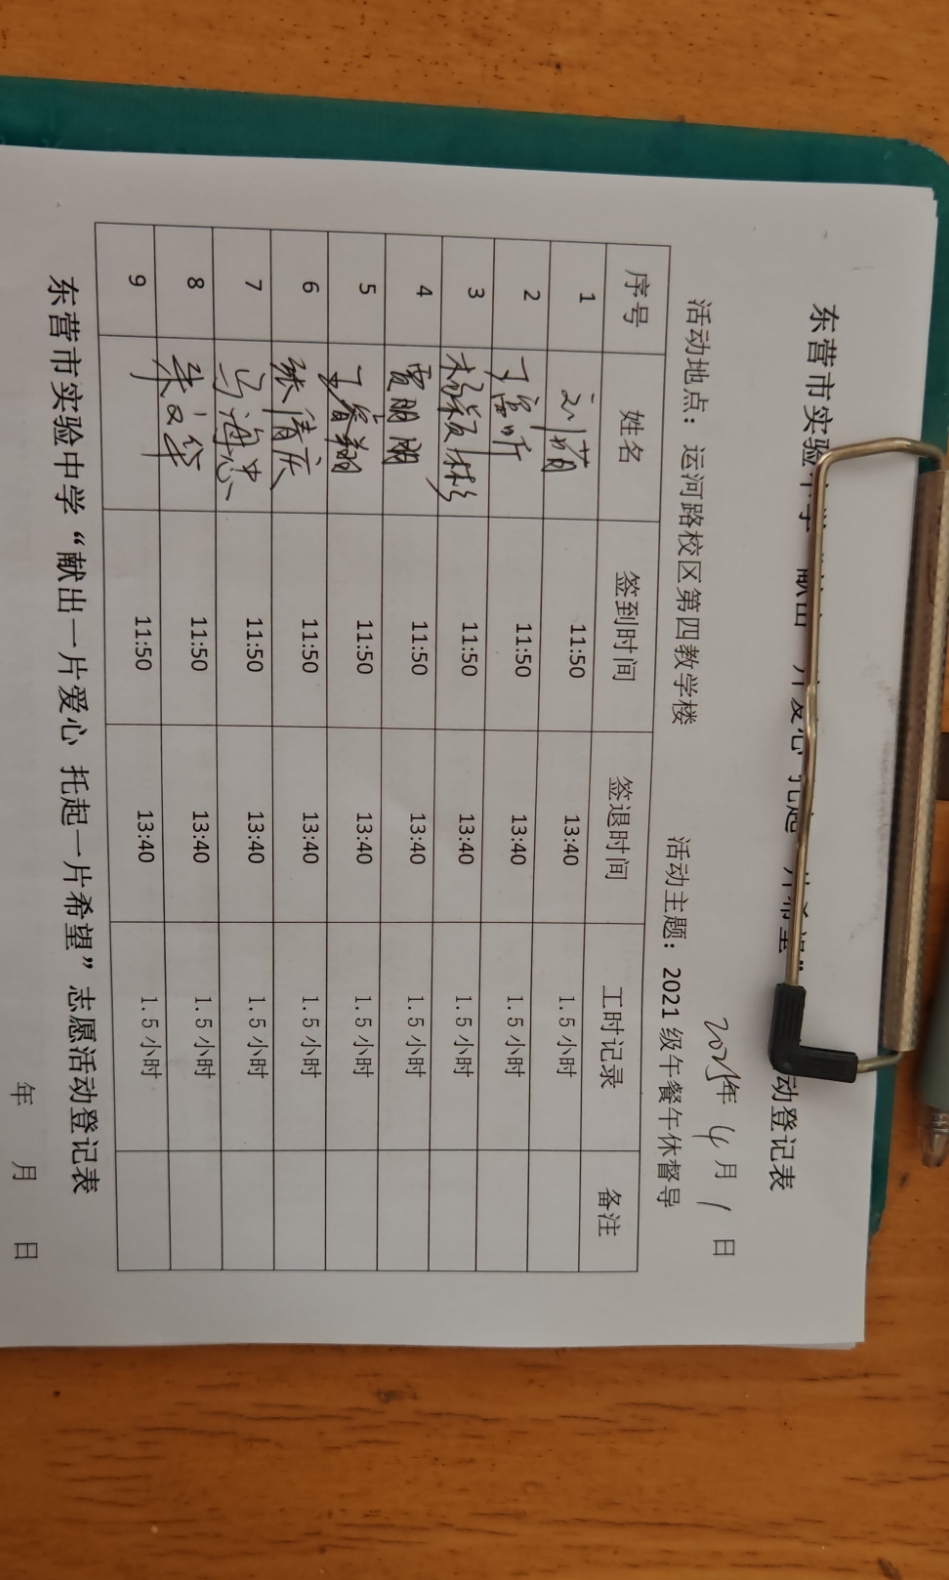 东营市实验中学“献出一片爱心 托起一片希望”志愿活动登记表
年 4月 1日
活动地点：运河路校区第四教学楼 活动主题：2021级午餐午休督导
序号 姓名 签到时间 签退时间 工时记录 备注
1 11:50 13:40 1.5小时
2 11:50 13:40 1.5小时
3 11:50 13:40 1.5小时
4 贾朋朋 11:50 13:40 1.5小时
5 11:50 13:40 1.5小时
6 张清庆 11:50 13:40 1.5小时
7 马海忠 11:50 13:40 1.5小时
8 11:50 13:40 1.5小时
9 11:50 13:40 1.5小时
东营市实验中学“献出一片爱心 托起一片希望”志愿活动登记表
年 月 日